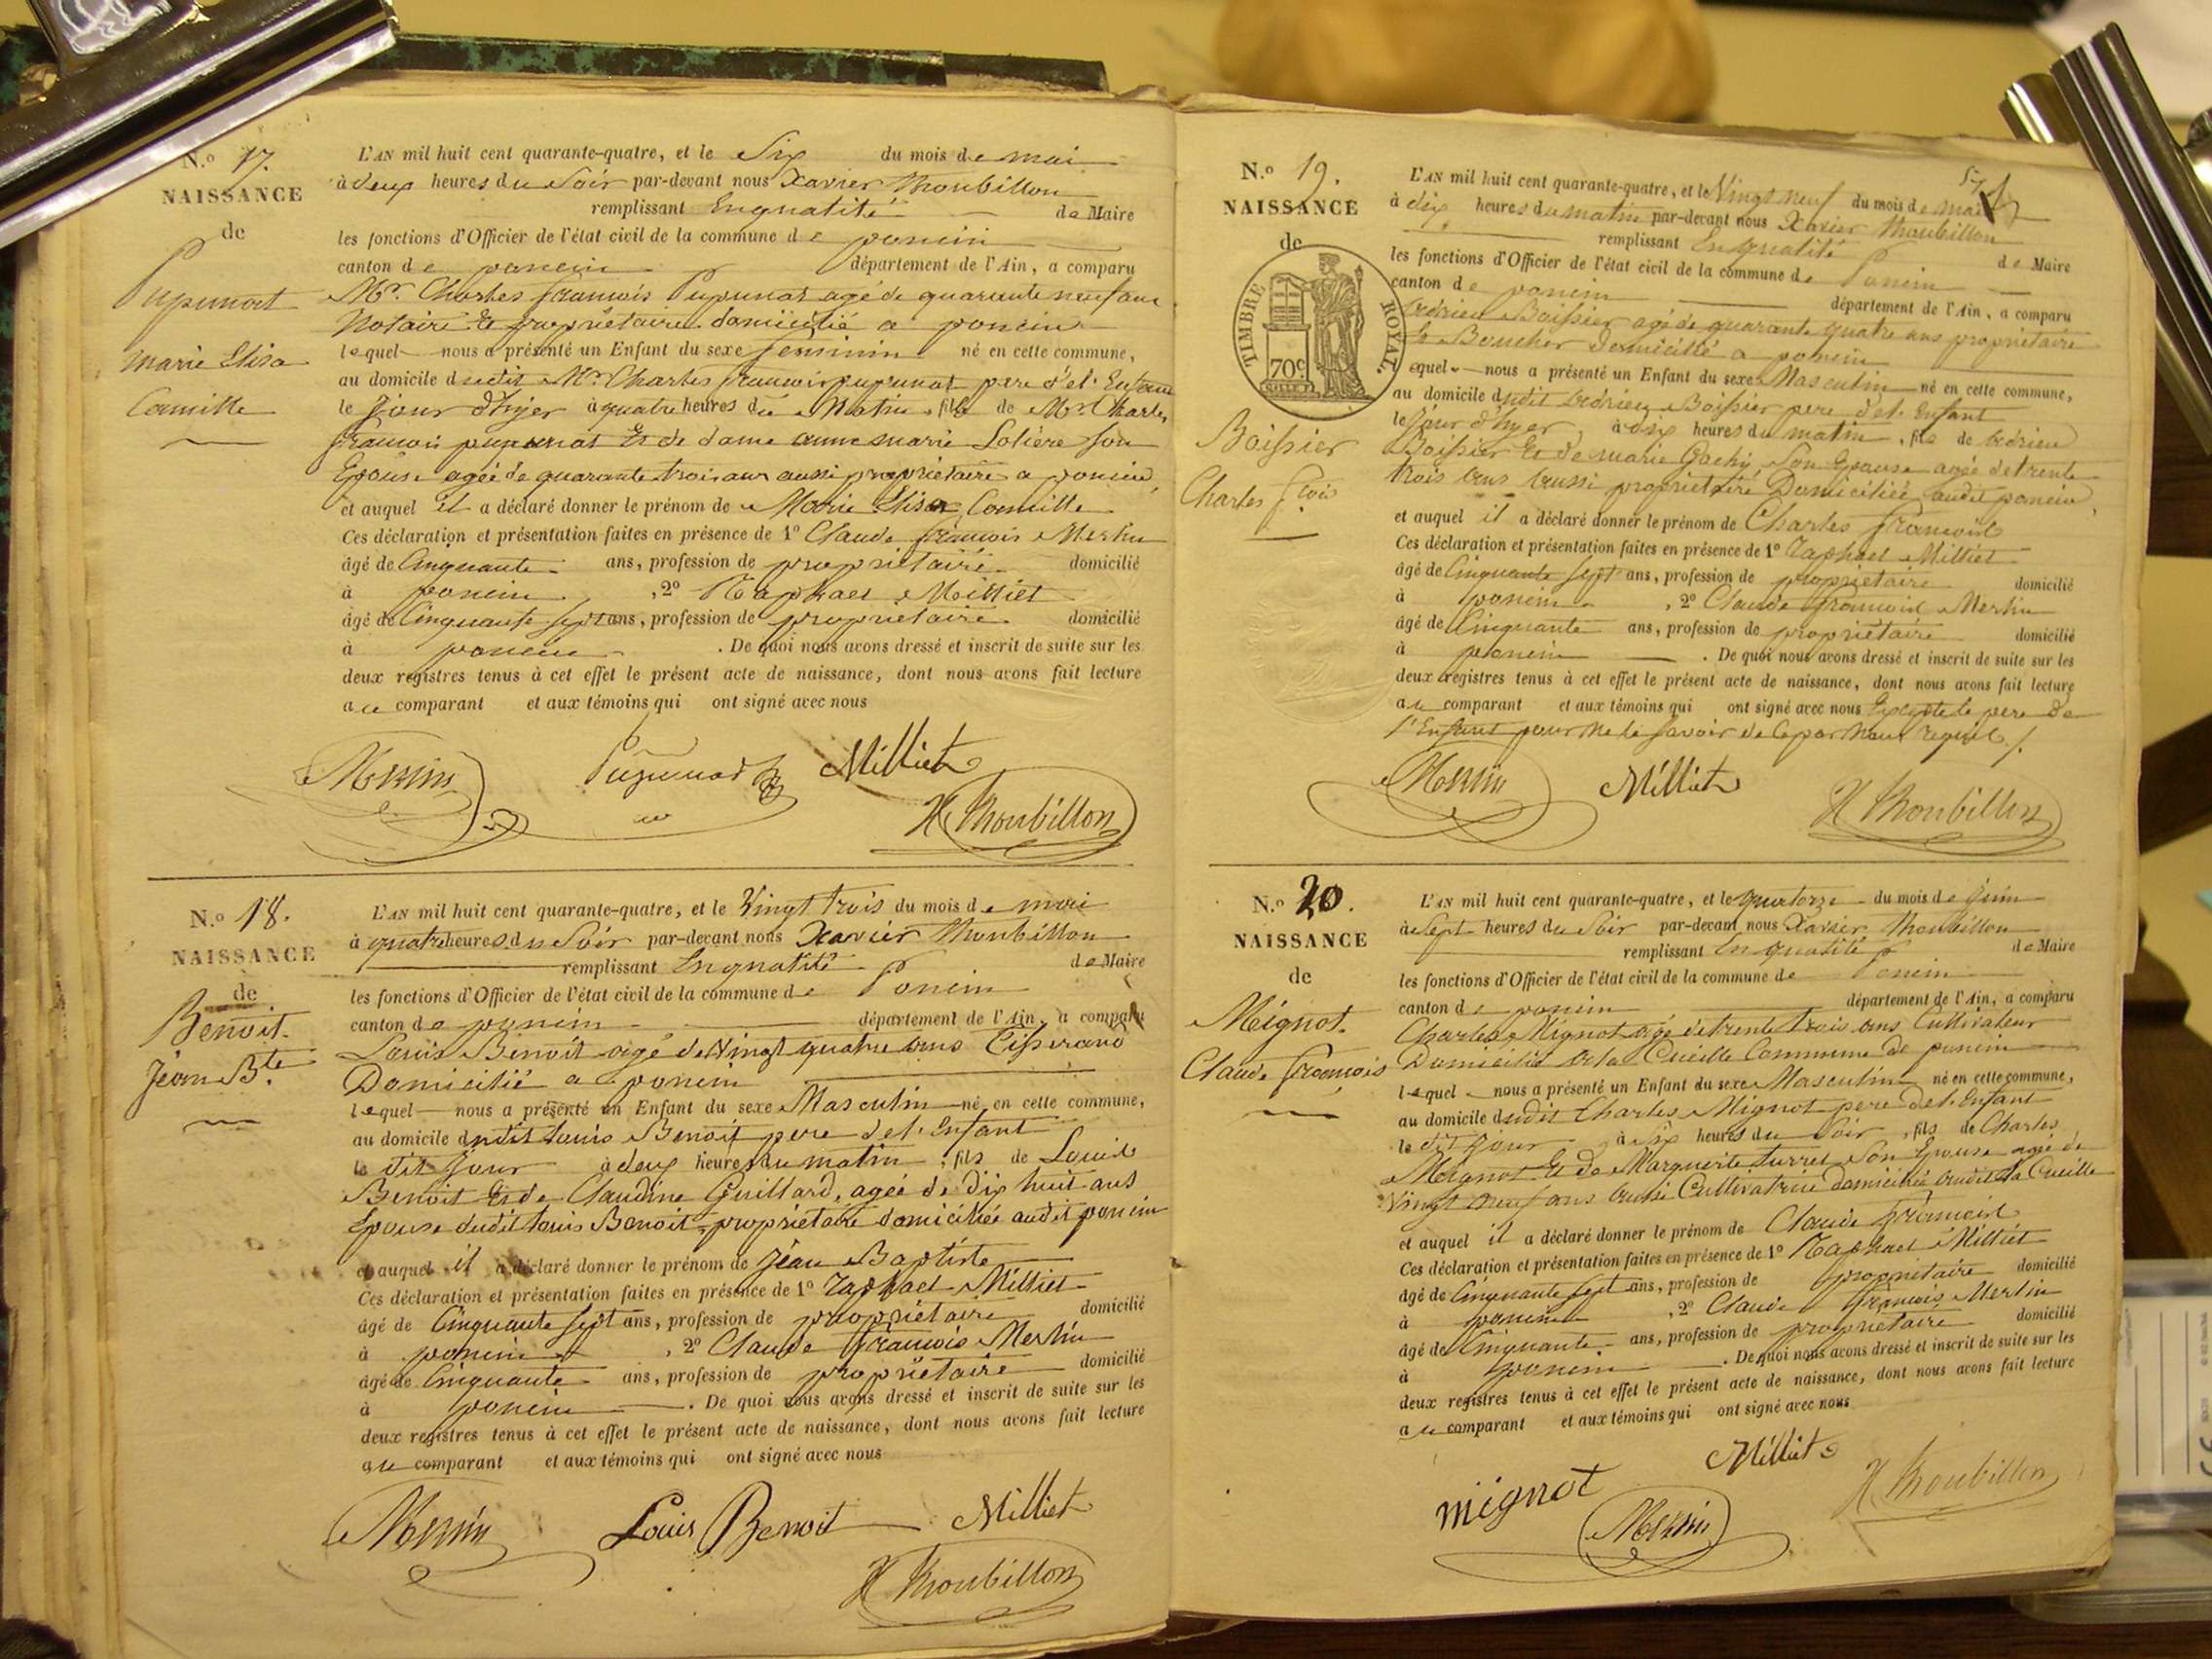 N.o 17.
NAISSANCE
de
Pupunat
Marie Elisa
Camille
L'AN mil huit cent quarante-quatre, et le Six du mois de mai
à deux heures du Soir par-devant nous Xavier Thoubillon
remplissant En qualité de Maire
les fonctions d'Officier de l'état civil de la commune de poncin
canton de poncin département de l'Ain, a comparu
Mr. Charles francois Pupunat agé de quarante neuf ans
Notaire Et proprietaire domicilié a poncin
lequel nous a présenté un Enfant du sexe feminin né en cette commune,
au domicile dudit Mr Charles francois pupunat pere de l'Enfant
le Jour d'hyer à quatre heures du Matin, fille de Mr Charles
francois pupunat Et de dame anne marie Loliere son
Epouse agée de quarante trois ans aussi proprietaire a poncin,
et auquel il a déclaré donner le prénom de Marie Elisa Camille
Ces déclaration et présentation faites en présence de 1o Claude francois Merlin
âgé de Cinquante ans, profession de proprietaire domicilié
à poncin , 2o Raphael Milliet
âgé de Cinquante sept ans, profession de proprietaire domicilié
à poncin . De quoi nous avons dressé et inscrit de suite sur les
deux registres tenus à cet effet le présent acte de naissance, dont nous avons fait lecture
au comparant et aux témoins qui ont signé avec nous
Merlin Pupunat Milliet
X Thoubillon
N.o 18.
NAISSANCE
de
Benoit
Jean Bte
L'AN mil huit cent quarante-quatre, et le Vingt trois du mois de mai
à quatre heures du Soir par-devant nous Xavier Thoubillon
remplissant En qualité de Maire
les fonctions d'Officier de l'état civil de la commune de Poncin
canton de poncin département de l'Ain, a comparu
Louis Benoit agé de Vingt quatre ans Tisserand
Domicilié a poncin
lequel nous a présenté un Enfant du sexe Masculin né en cette commune,
au domicile dudit Louis Benoit pere de l'Enfant
le dit Jour à deux heures du matin, fils de Louis
Benoit Et de Claudine Guillard, agée de Dix huit ans
Epouse dudit Louis Benoit, proprietaire domiciliée audit poncin
et auquel il a déclaré donner le prénom de Jean Baptiste
Ces déclaration et présentation faites en présence de 1o Raphael Milliet
âgé de Cinquante sept ans, profession de proprietaire domicilié
à poncin , 2o Claude francois Merlin
âgé de Cinquante ans, profession de proprietaire domicilié
à poncin . De quoi nous avons dressé et inscrit de suite sur les
deux registres tenus à cet effet le présent acte de naissance, dont nous avons fait lecture
au comparant et aux témoins qui ont signé avec nous
Merlin Louis Benoit Milliet
X Thoubillon
N.o 19.
NAISSANCE
de
TIMBRE ROYAL.
70c
Boissier
Charles fcois
L'AN mil huit cent quarante-quatre, et le Vingt neuf du mois de mai
à dix heures du matin par-devant nous Xavier Thoubillon
remplissant En qualité de Maire
les fonctions d'Officier de l'état civil de la commune de Poncin
canton de poncin département de l'Ain, a comparu
Boissier agé de quarante quatre ans proprietaire
Et Boucher domicilié a poncin
lequel nous a présenté un Enfant du sexe Masculin né en cette commune,
au domicile dudit Boissier pere de l'Enfant
le Jour d'hyer, à dix heures du matin, fils de
Boissier Et de marie Gachy, Son Epouse agée de trente
trois ans aussi proprietaire Domiciliée audit poncin,
et auquel il a déclaré donner le prénom de Charles francois
Ces déclaration et présentation faites en présence de 1o Raphael Milliet
âgé de Cinquante sept ans, profession de proprietaire domicilié
à poncin , 2o Claude francois Merlin
âgé de Cinquante ans, profession de proprietaire domicilié
à poncin . De quoi nous avons dressé et inscrit de suite sur les
deux registres tenus à cet effet le présent acte de naissance, dont nous avons fait lecture
au comparant et aux témoins qui ont signé avec nous Excepte le pere de
l'Enfant pour ne le savoir de ce par nous requis
Merlin Milliet
X Thoubillon
N.o 20.
NAISSANCE
de
Meignot
Claude francois
L'AN mil huit cent quarante-quatre, et le quatorze du mois de Juin
à Sept heures du Soir par-devant nous Xavier Thoubillon
remplissant En qualité de Maire
les fonctions d'Officier de l'état civil de la commune de Poncin
canton de poncin département de l'Ain, a comparu
Charles Mignot agé de trente trois ans Cultivateur
Domicilié a la Cueille Commune de poncin
lequel nous a présenté un Enfant du sexe Masculin né en cette commune,
au domicile dudit Charles Mignot pere de l'Enfant
le dit Jour à Six heures du Soir, fils de Charles
Meignot Et de Marguerite Turrel Son Epouse agée de
Vingt neuf ans aussi Cultivatrice domiciliée audit La Cueille
et auquel il a déclaré donner le prénom de Claude francois
Ces déclaration et présentation faites en présence de 1o Raphael Milliet
âgé de Cinquante sept ans, profession de proprietaire domicilié
à poncin , 2o Claude francois Merlin
âgé de Cinquante ans, profession de proprietaire domicilié
à poncin . De quoi nous avons dressé et inscrit de suite sur les
deux registres tenus à cet effet le présent acte de naissance, dont nous avons fait lecture
au comparant et aux témoins qui ont signé avec nous
mignot Milliet
Merlin X Thoubillon